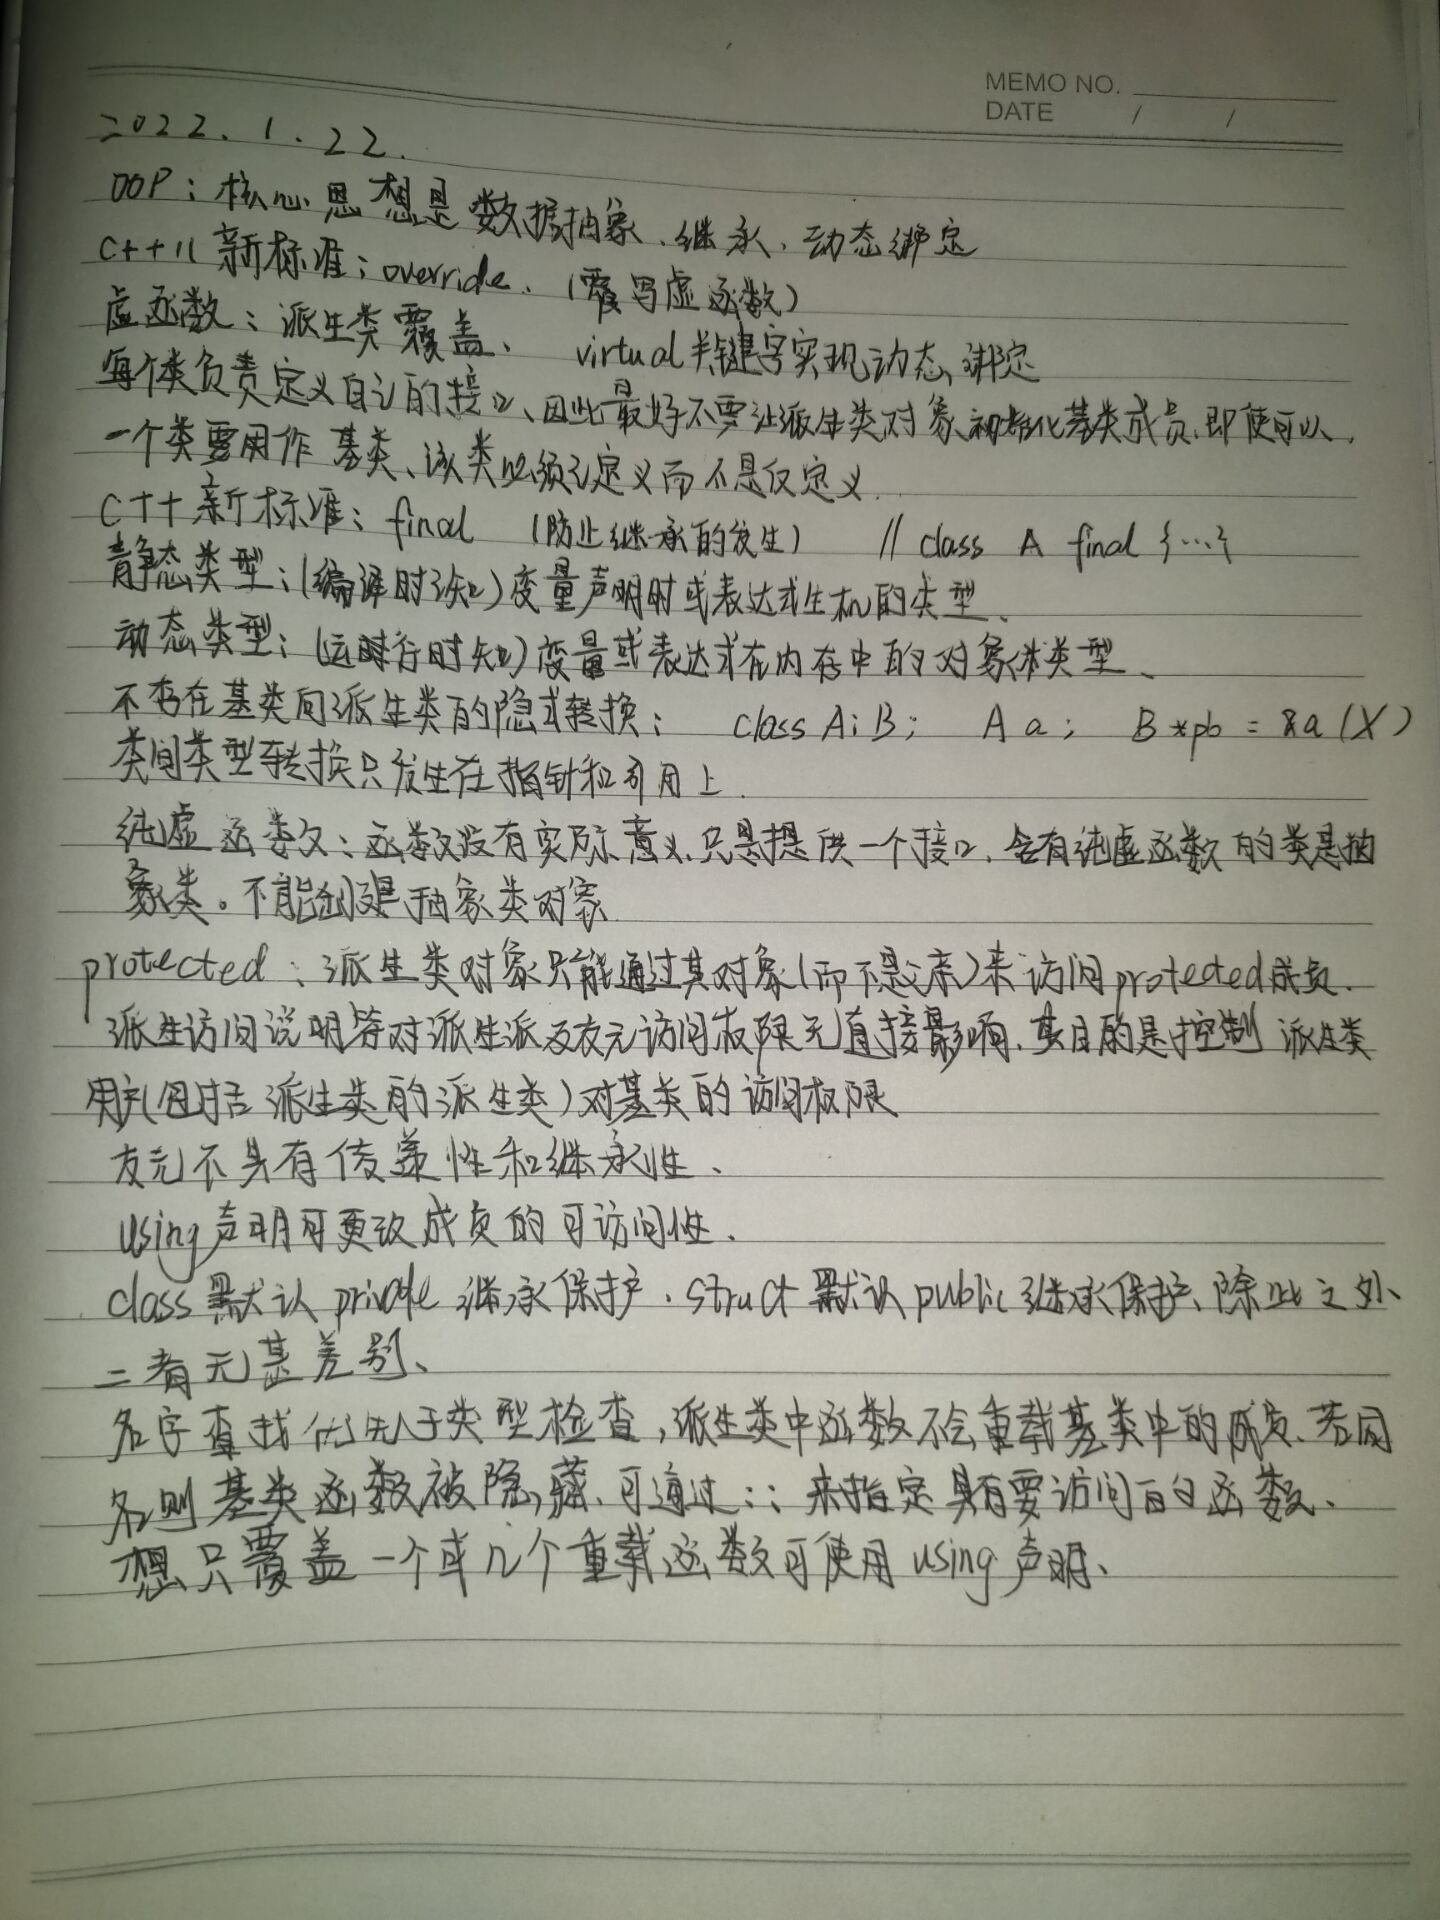 MEMO NO.
DATE / /
2022.1.22.
OOP：核心思想是数据抽象、继承、动态绑定
C++11新标准：override.（覆写虚函数）
虚函数：派生类覆盖、 virtual关键字实现动态绑定
每个类负责定义自己的接口、因此最好不要让派生类对象初始化基类成员、即使可以.
一个类要用作基类、该类必须已定义而不是仅定义.
C++新标准：final （防止继承的发生） // class A final {...}
静态类型：（编译时已知）变量声明时或表达式生成的类型、
动态类型：（运行时知）变量或表达式在内存中的对象体类型、
不存在基类向派生类的隐式转换： class A:B; A a; B *pb = &a (X)
类间类型转换只发生在指针和引用上.
纯虚函数：函数没有实际意义、只是提供一个接口、含有纯虚函数的类是抽
象类。不能创建抽象类对象
protected：派生类对象只能通过其对象（而不是父亲）来访问protected成员.
派生访问说明符对派生派及友元访问权限无直接影响、其目的是控制派生类
用户（包括派生类的派生类）对基类的访问权限
友元不具有传递性和继承性、
using声明可更改成员的可访问性、
class默认private继承保护、struct默认public继承保护、除此之外
二者无甚差别、
名字查找优先于类型检查，派生类中函数不会重载基类中的成员、若同
名则基类函数被隐藏、可通过::来指定具有要访问的函数、
想只覆盖一个或几个重载函数可使用using声明、